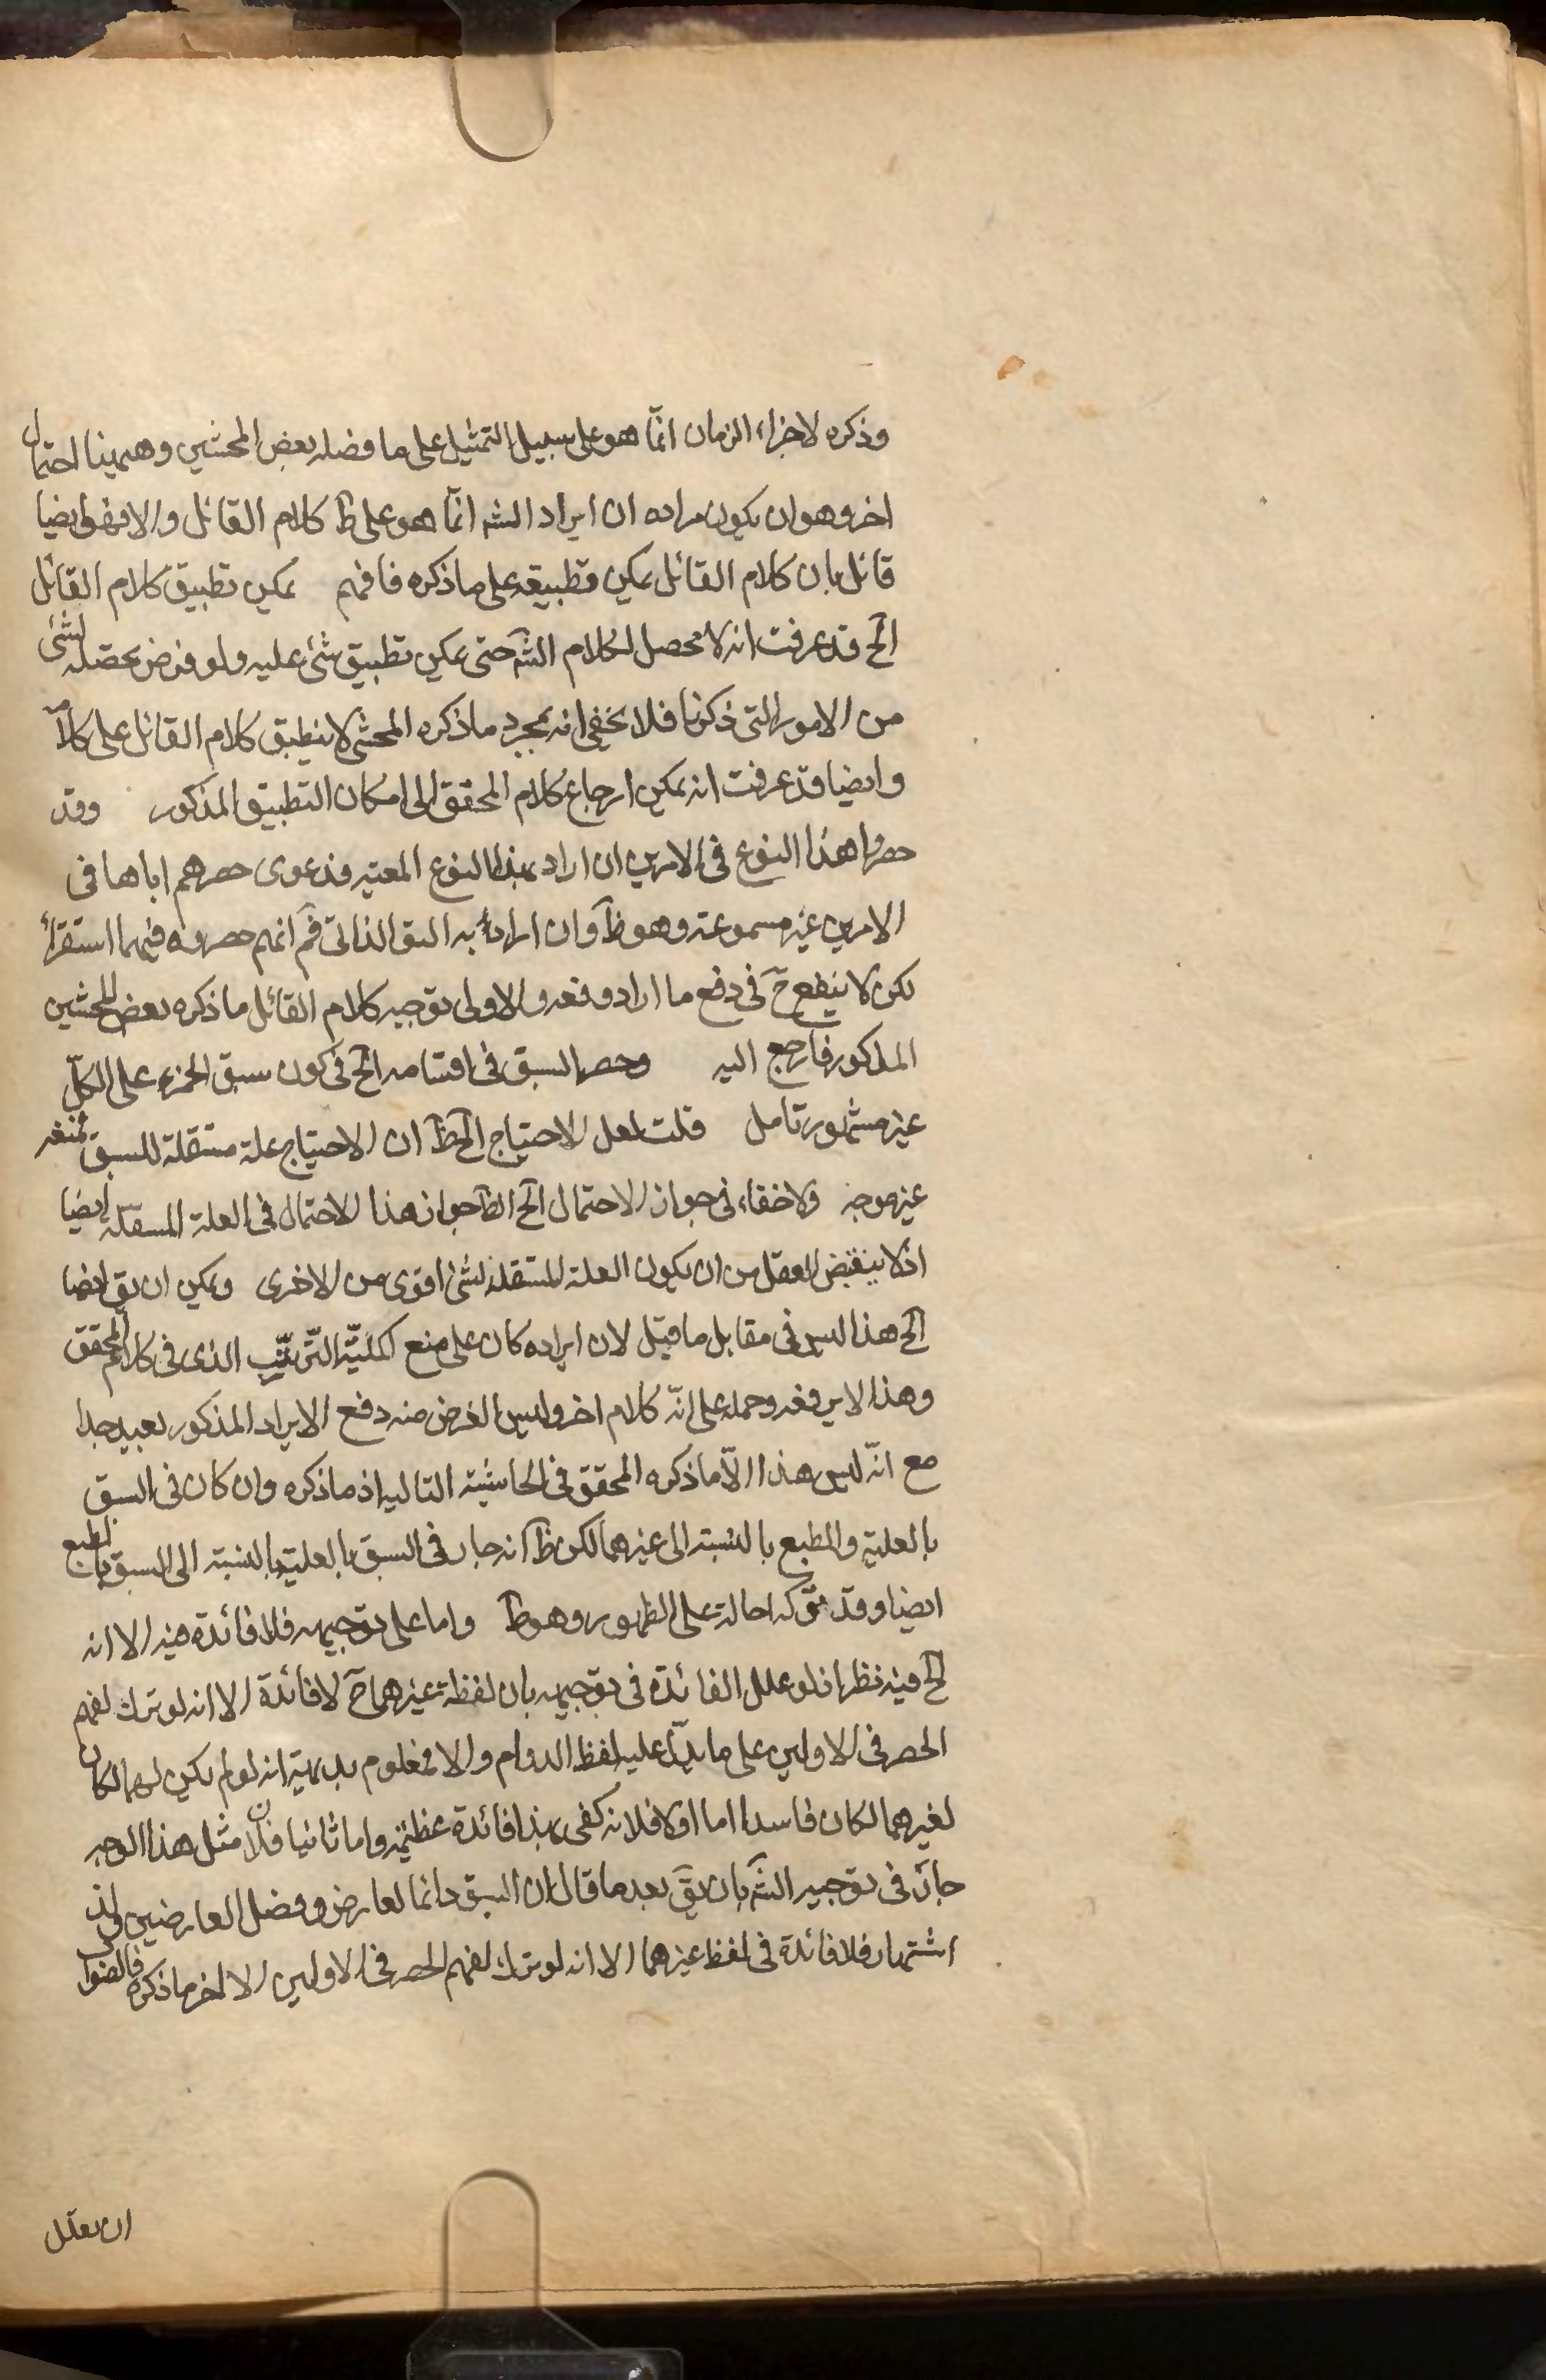 وذكره لاجزاء الزمان انمّا هو على سبيل التمثيل على ما فصله بعض المحشيي وهيهنا احتمال
اخر وهو ان يكون مراده ان ايراد الشه انمّا هو على ظ كلام القائل والا فهو ايضا
قائل بان كلام القائل يمكن تطبيقه على ما ذكره فافهم يمكن تطبيق كلام القائل
الخ قد عرفت انه لا محصل لكلام الشه حتى يمكن تطبيق شئ عليه ولو فرض محصله لشئ
من الامور التى ذكرنا فلا يخفى انه بمجرد ما ذكره المحشى لا ينطبق كلام القائل على كلامه
وايضا قد عرفت انه يمكن ارجاع كلام المحقق الى امكان التطبيق المذكور وقد
حصروا هذا النوع فى الامرين ان اراد بهذا النوع المعيه فدعوى حصرهم اياها فى
الامرين غير مسموعة وهو ظ وان اراد به السق الذاتى فم انهم حصروه فيهما استقرأ
لكن لا ينفع ح فى دفع ما اراد دفعه والاولى توجيه كلام القائل ما ذكره بعض المحشين
المذكور فارجع اليه وحصر السبق فى اقسامه الخ فى كون سبق الجزء على الكلّ
غير مشهور تامل قلت لعل الاحتياج الخ ظ ان الاحتياج علة مستقلة للسبق فمنعه
غير موجه ولا خفاء فى جواز الاحتمال الخ الظ جواز هذا الاحتمال فى العلة المستقلة ايضا
اذ لا ينقبض العقل من ان يكون العلة المستقلة لشئ اقوى من الاخرى ويمكن ان يق ايضا
الخ هذا ليس فى مقابل ما قيل لان ايراده كان على منع كليّة التّرتّيب الذى فى كلام المحقق
وهذا لا يرفعه وحمله على انّه كلام اخر وليس الغرض منه دفع الايراد المذكور بعيد جدا
مع انّه ليس هذا الّا ما ذكره المحقق فى الحاشية التاليه اذ ما ذكره وان كان فى السبق
بالعليّة والطبع بالنسبة الى غيرهما لكن ظ انه جار فى السبق بالعلية بالنسبة الى السبق بالطبع
ايضا وقد تركه احالة على الظهور وهو ظ واما على توجيهه فلا فائدة فيه الا انه
الخ فيه نظر اذ لو علل الفائدة فى توجيهه بان لفظة غيرهما ح لا فائدة الا انه لو ترك لفهم
الحصر فى الاولين على ما يدلّ عليه لفظ الدوام والا فمعلوم بديهية انه لو لم يكن لهما لكان
لغيرهما لكان فاسدا اما اولا فلانه كفى بهذا فائدة عظيمه واما ثانيا فلان مثل هذا الوجه
جار فى توجيه الشه بان يق بعد ما قال ان السبق دائما لعارض وفصل العارضين
اشتهار فلا فائدة فى لفظ غيرهما الا انه لو ترك لفهم الحصر فى الاولين الا لخر ما ذكره فالصواب
ان يعلل